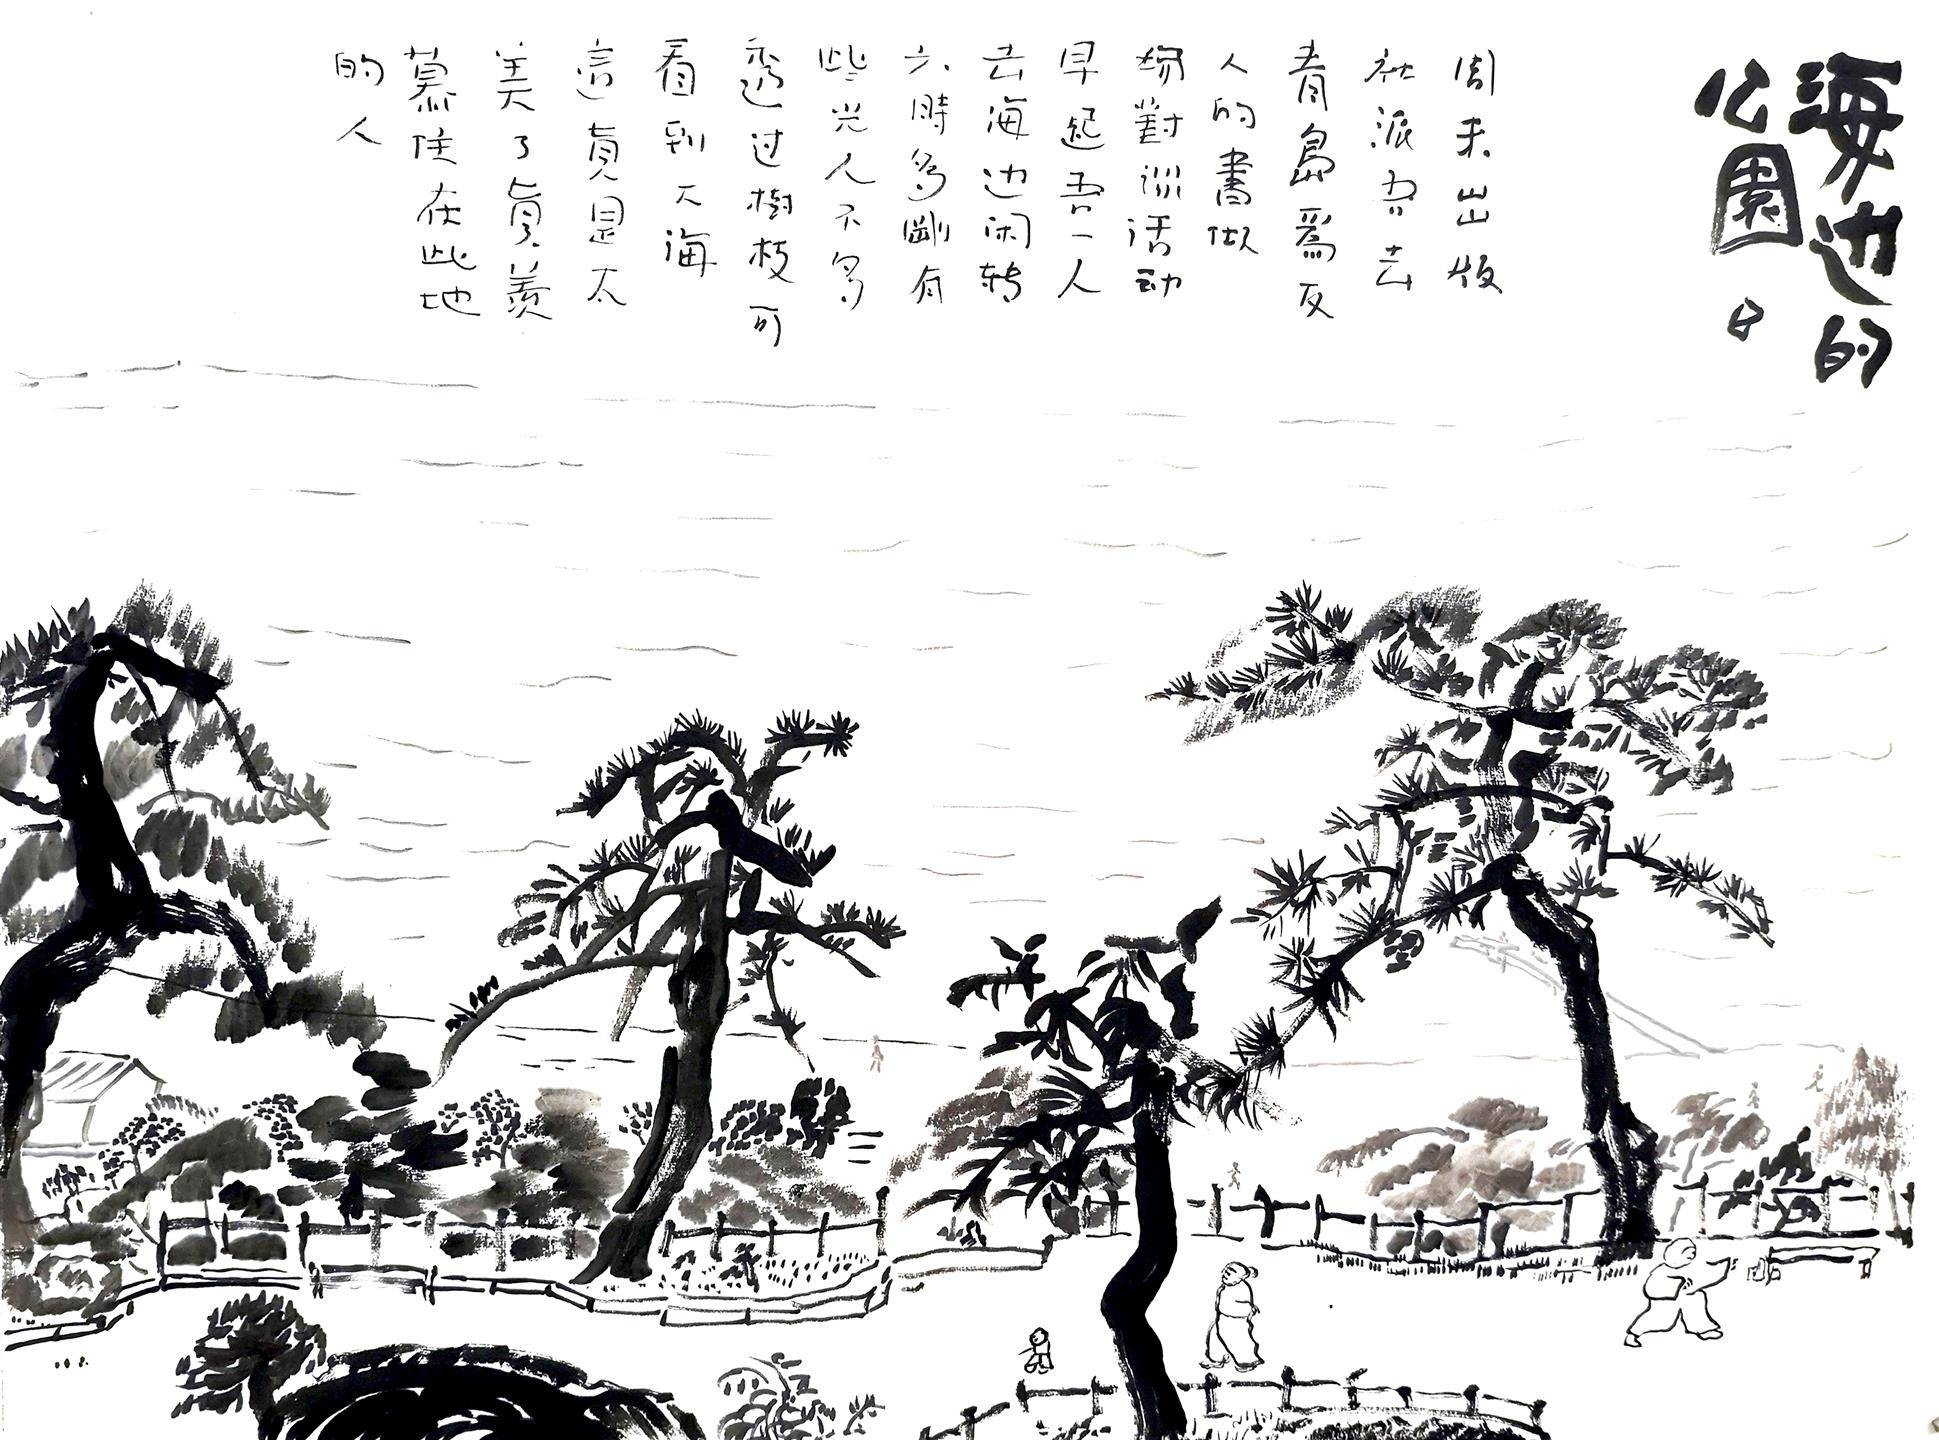 海边的
公園
周末出版
社派吾去
青島爲友
人的書做
場對谈活动
早起吾一人
去海边闲转
六時多剛有
些光人不多
透过樹枝可
看到大海
这真是太
美了真羨
慕住在此地
的人